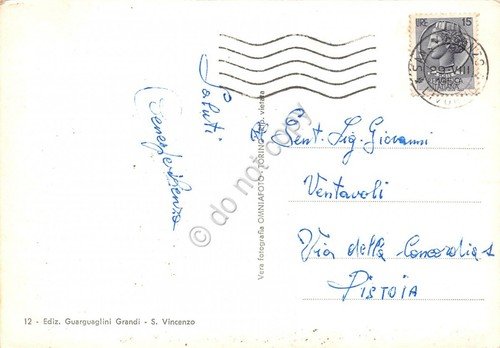 Saluti
LIRE 15
29·VIII
Gent. Sig. Giovanni
Ventavoli
Via della Concordia
PISTOIA
Vera fotografia OMNIAFOTO · TORINO · vietata
12 - Ediz. Guarguaglini Grandi - S. Vincenzo
do not copy